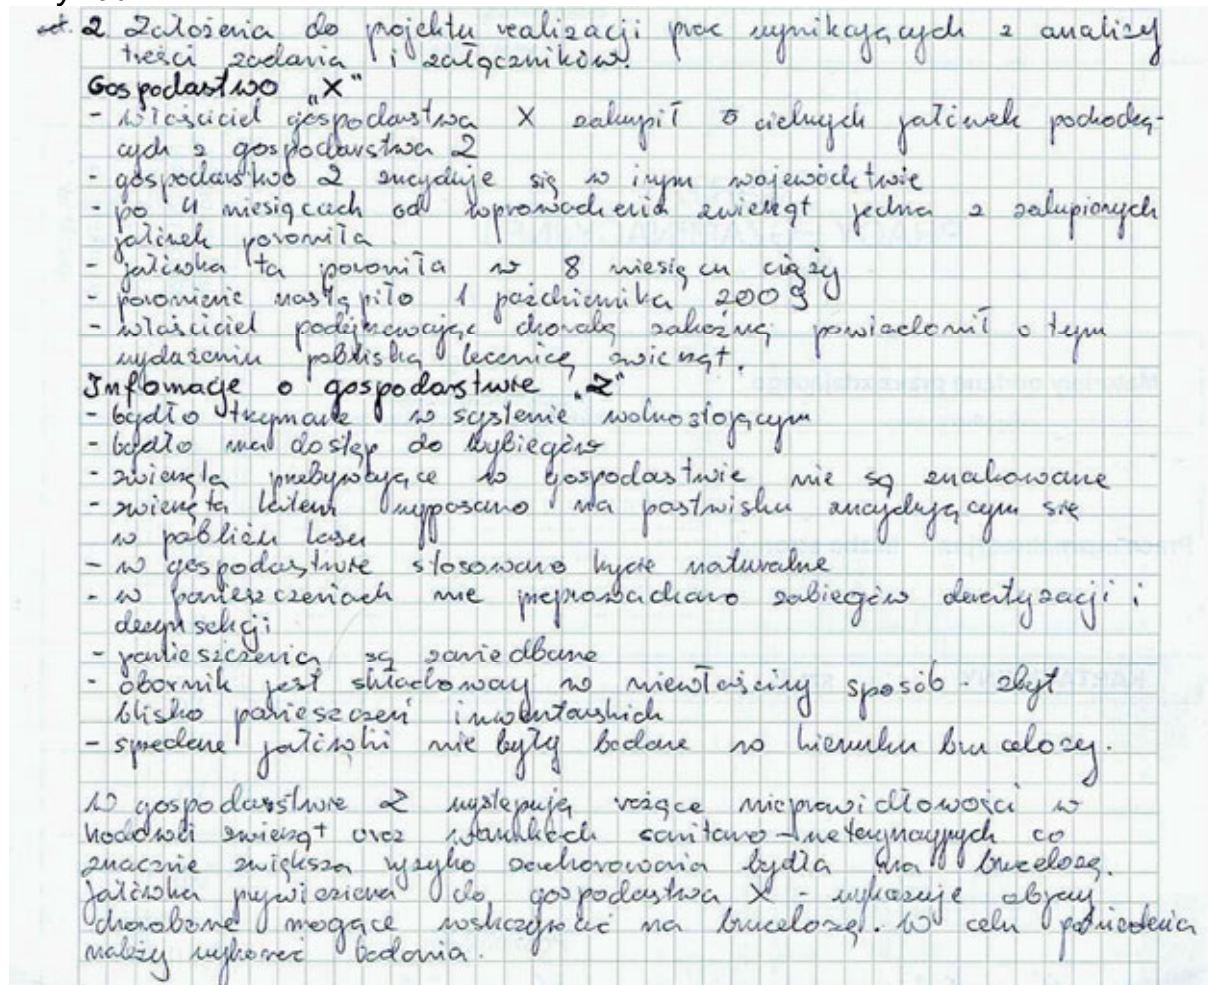 ad. 2 Założenia do projektu realizacji prac wynikających z analizy
treści zadania i załączników.
Gospodastwo „X"
- właściciel gospodarstwa X zakupił 5 cielnych jałówek pochodzą-
cych z gospodarstwa Z
- gospodarstwo Z znajduje się w innym województwie
- po 4 miesiącach od wprowadzenia zwierząt jedna z zakupionych
jałówek poroniła
- jałówka ta poroniła w 8 miesiącu ciąży
- poronienie nastąpiło 1 października 2009
- właściciel podejrzewając chorobę zakaźną powiadomił o tym
wydażeniu pobliską lecznicę zwierząt.
Infomacje o gospodarstwie „Z"
- bydło trzymane w systemie wolnostojącym
- bydło ma dostęp do wybiegów
- zwierzęta przebywające w gospodastwie nie są znakowane
- zwierzęta latem wypasano na pastwisku znajdującym się
w pobliżu lasu
- w gospodastwie stosowano krycie naturalne
- w pomieszczeniach nie przeprowadzano zabiegów deratyzacji i
dezynsekcji
- pomieszczenia są zaniedbane
- obornik jest składowany w niewłaściwy sposób zbyt
blisko pomieszczeń inwentarskich
- sprzedane jałówki nie były badane w kierunku brucelozy.
W gospodarstwie Z występują rażące nieprawidłowości w
hodowli zwierząt oraz warunkach sanitarno-weterynaryjnych co
znacznie zwiększa ryzyko zachorowania bydła na brucelozę.
Jałówka przywieziona do gospodarstwa X - wykazuje objawy
chorobowe mogące wskazywać na brucelozę. W celu potwierdzenia
należy wykonać badania.